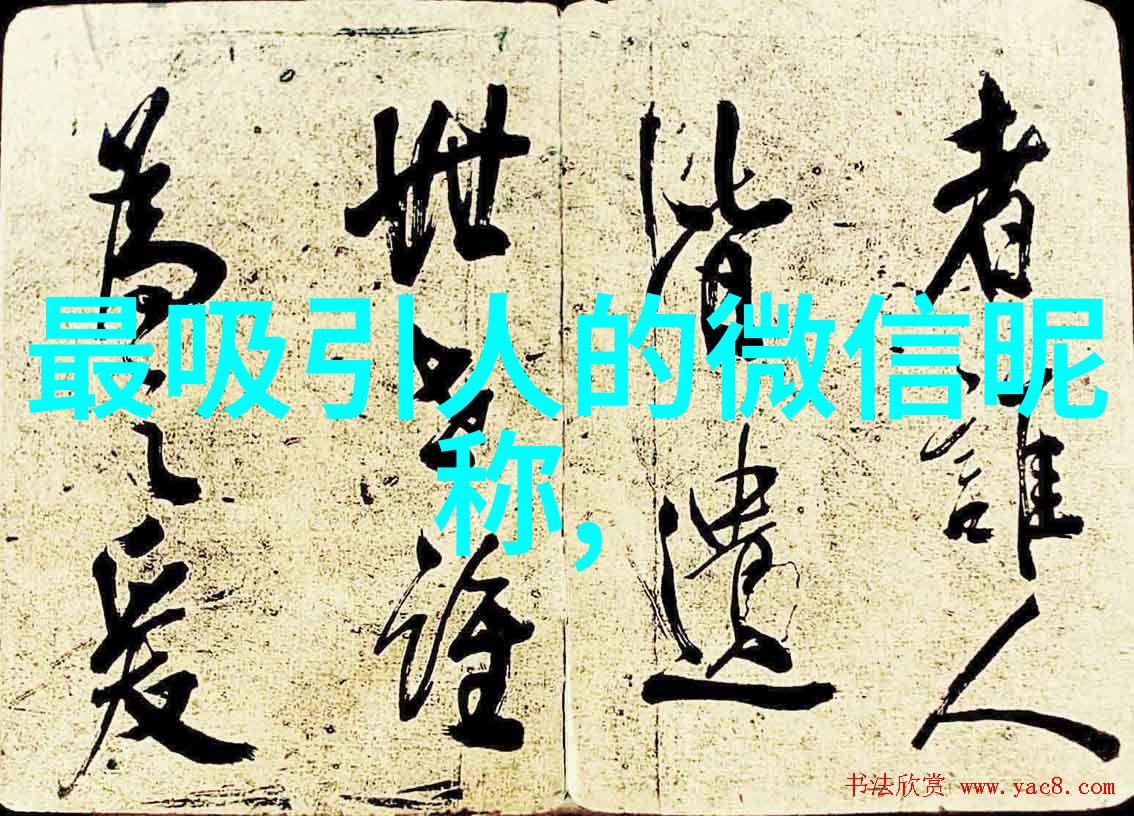 最吸引人的微信昵
称,
者誰人
皆遺
世誰
為之
书法欣赏 www.yac8.com